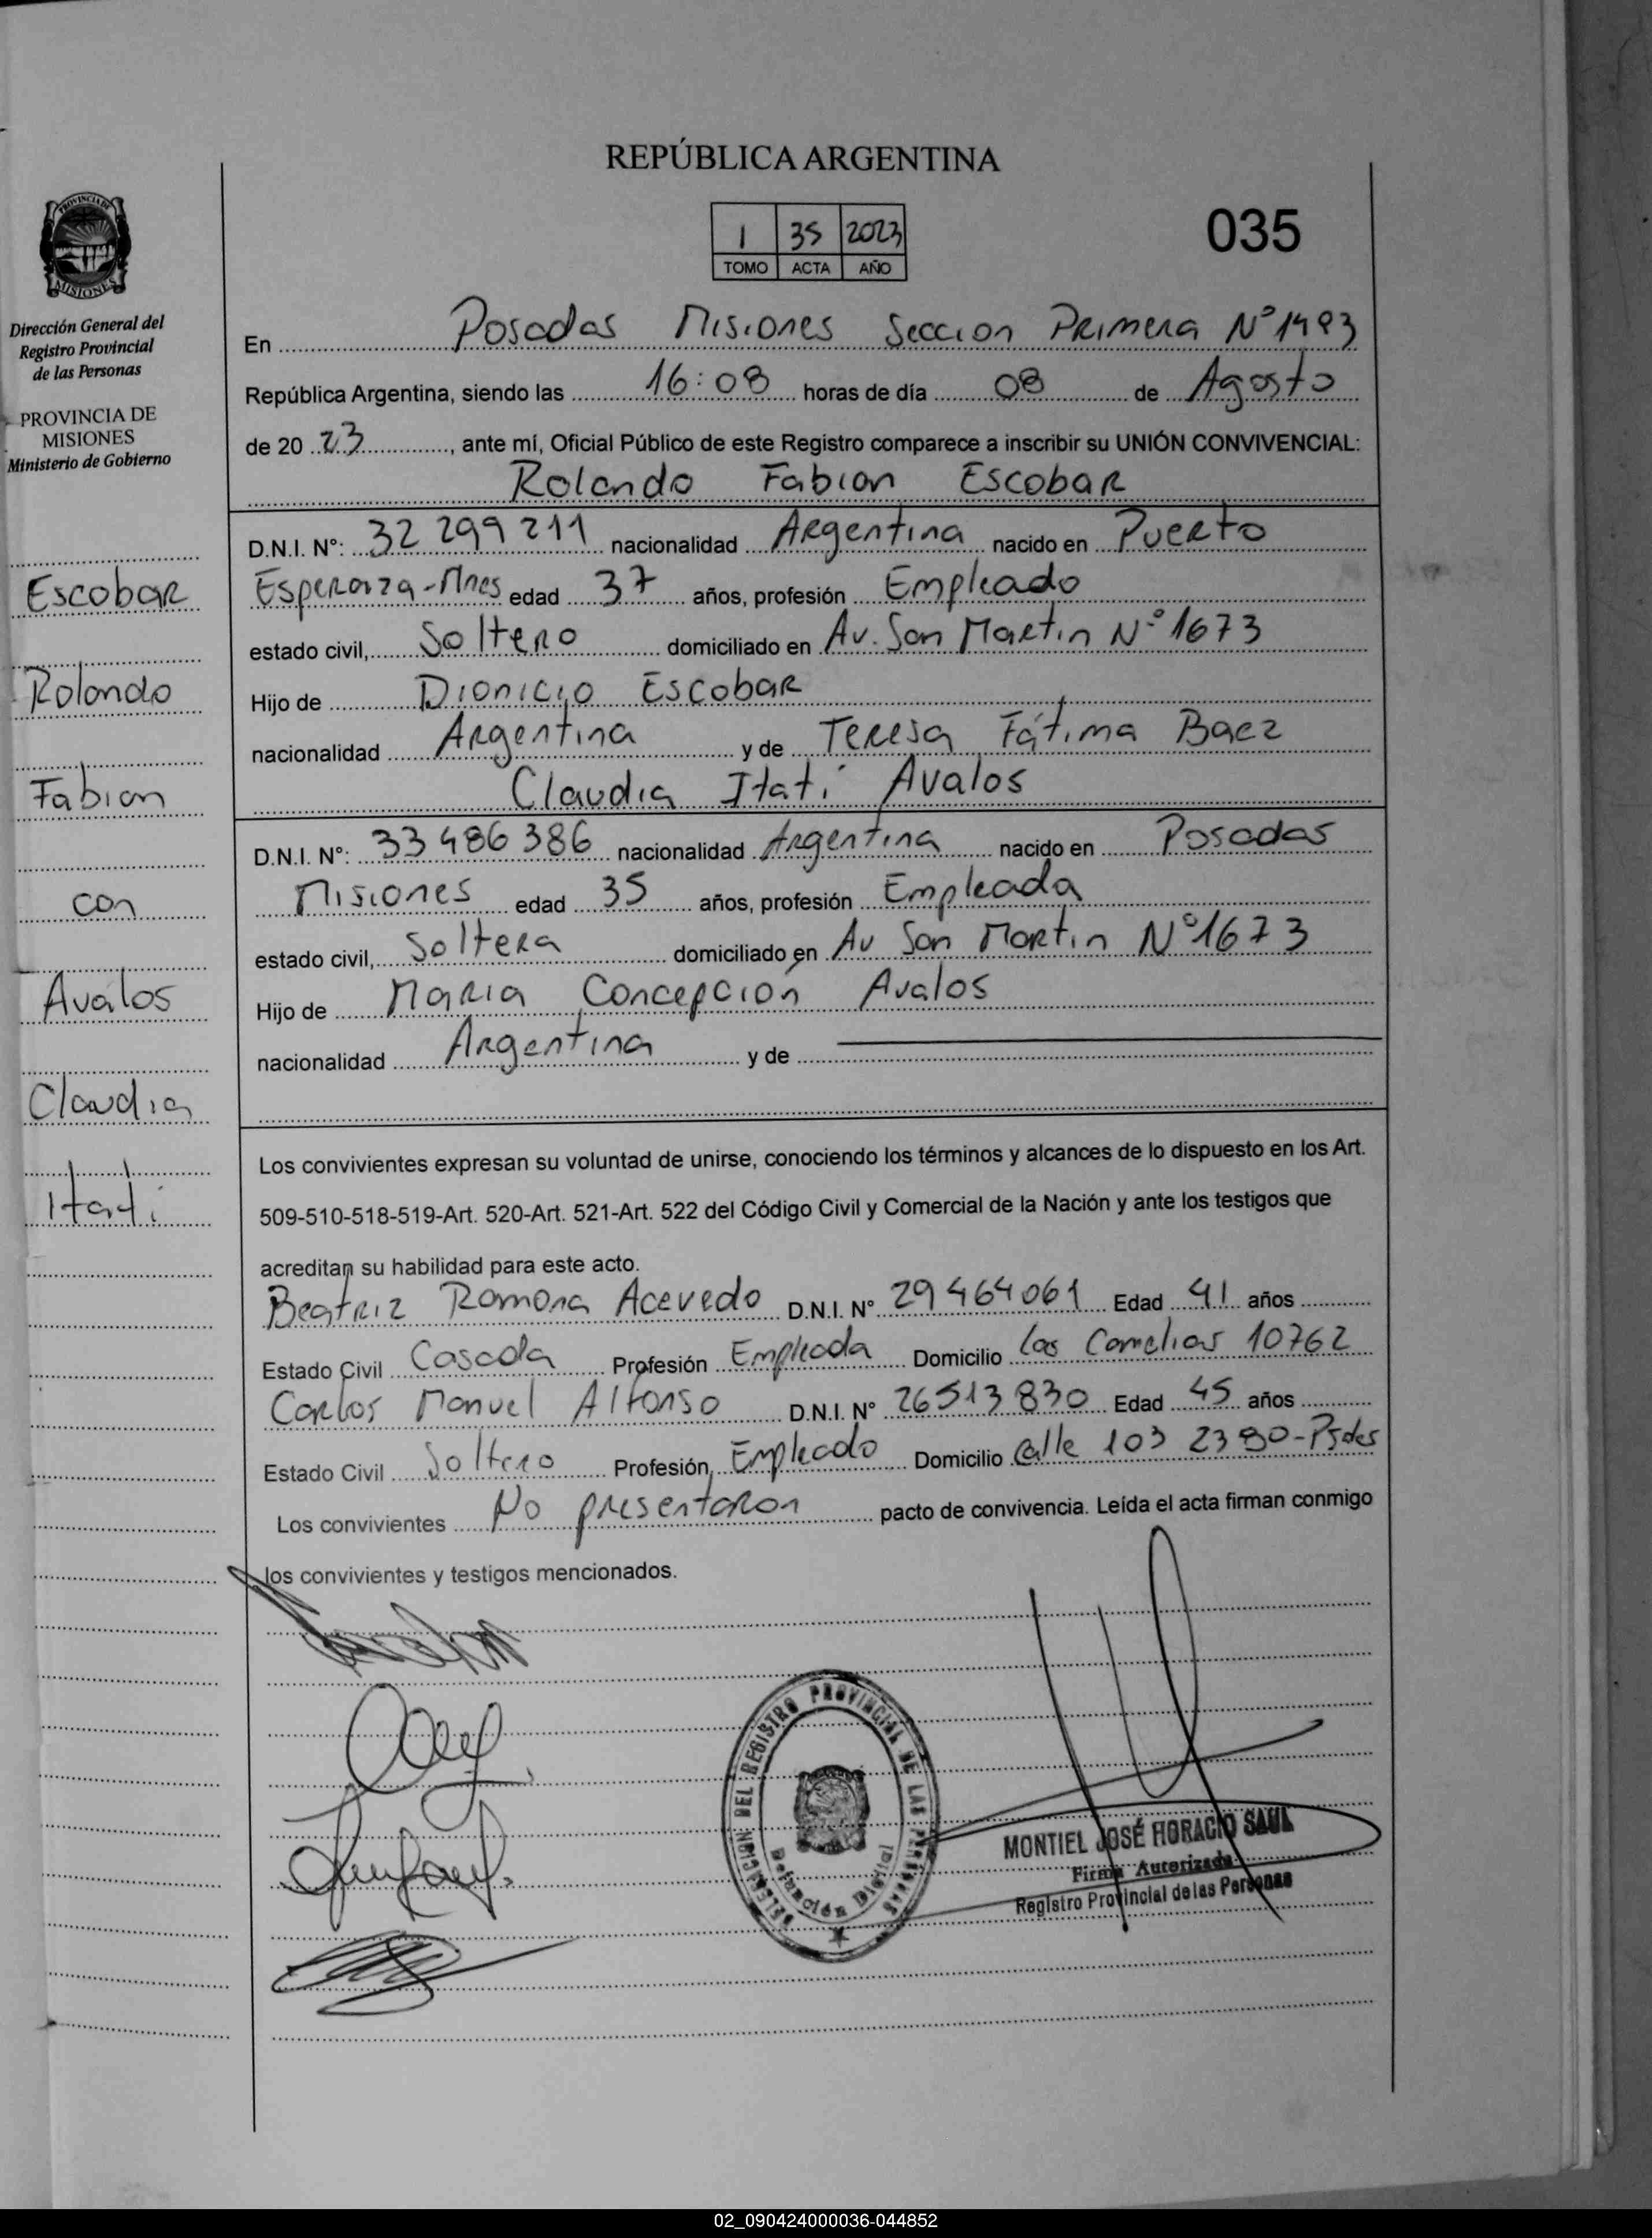 REPÚBLICA ARGENTINA
1 35 2023
TOMO ACTA AÑO
035
PROVINCIA DE
MISIONES
Dirección General del
Registro Provincial
de las Personas
PROVINCIA DE
MISIONES
Ministerio de Gobierno
Escobar
Rolando
Fabian
con
Avalos
Claudia
Itatí
En Posadas Misiones Seccion Primera N° 1493
República Argentina, siendo las 16:08 horas de día 08 de Agosto
de 20 23, ante mí, Oficial Público de este Registro comparece a inscribir su UNIÓN CONVIVENCIAL:
Rolando Fabian Escobar
D.N.I. N°: 32 299 211 nacionalidad Argentina nacido en Puerto
Esperanza-Mnes edad 37 años, profesión Empleado
estado civil, Soltero domiciliado en Av. San Martin N° 1673
Hijo de Dionicio Escobar
nacionalidad Argentina y de Teresa Fátima Baez
Claudia Itatí Avalos
D.N.I. N°: 33 486 386 nacionalidad Argentina nacido en Posadas
Misiones edad 35 años, profesión Empleada
estado civil, Soltera domiciliado en Av San Martin N° 1673
Hijo de Maria Concepción Avalos
nacionalidad Argentina y de
Los convivientes expresan su voluntad de unirse, conociendo los términos y alcances de lo dispuesto en los Art.
509-510-518-519-Art. 520-Art. 521-Art. 522 del Código Civil y Comercial de la Nación y ante los testigos que
acreditan su habilidad para este acto.
Beatriz Ramona Acevedo D.N.I. N° 29 464 061 Edad 41 años
Estado Civil Casada Profesión Empleada Domicilio Las Camelias 10762
Carlos Manuel Alfonso D.N.I. N° 26 513 830 Edad 45 años
Estado Civil Soltero Profesión, Empleado Domicilio Calle 103 2380-Psdas
Los convivientes No presentaron pacto de convivencia. Leída el acta firman conmigo
los convivientes y testigos mencionados.
DELEGACION DEL REGISTRO PROVINCIAL DE LAS PERSONAS
Defunción Digital
MONTIEL JOSÉ HORACIO SAUL
Firma Autorizada
Registro Provincial de las Personas
02_090424000036-044852